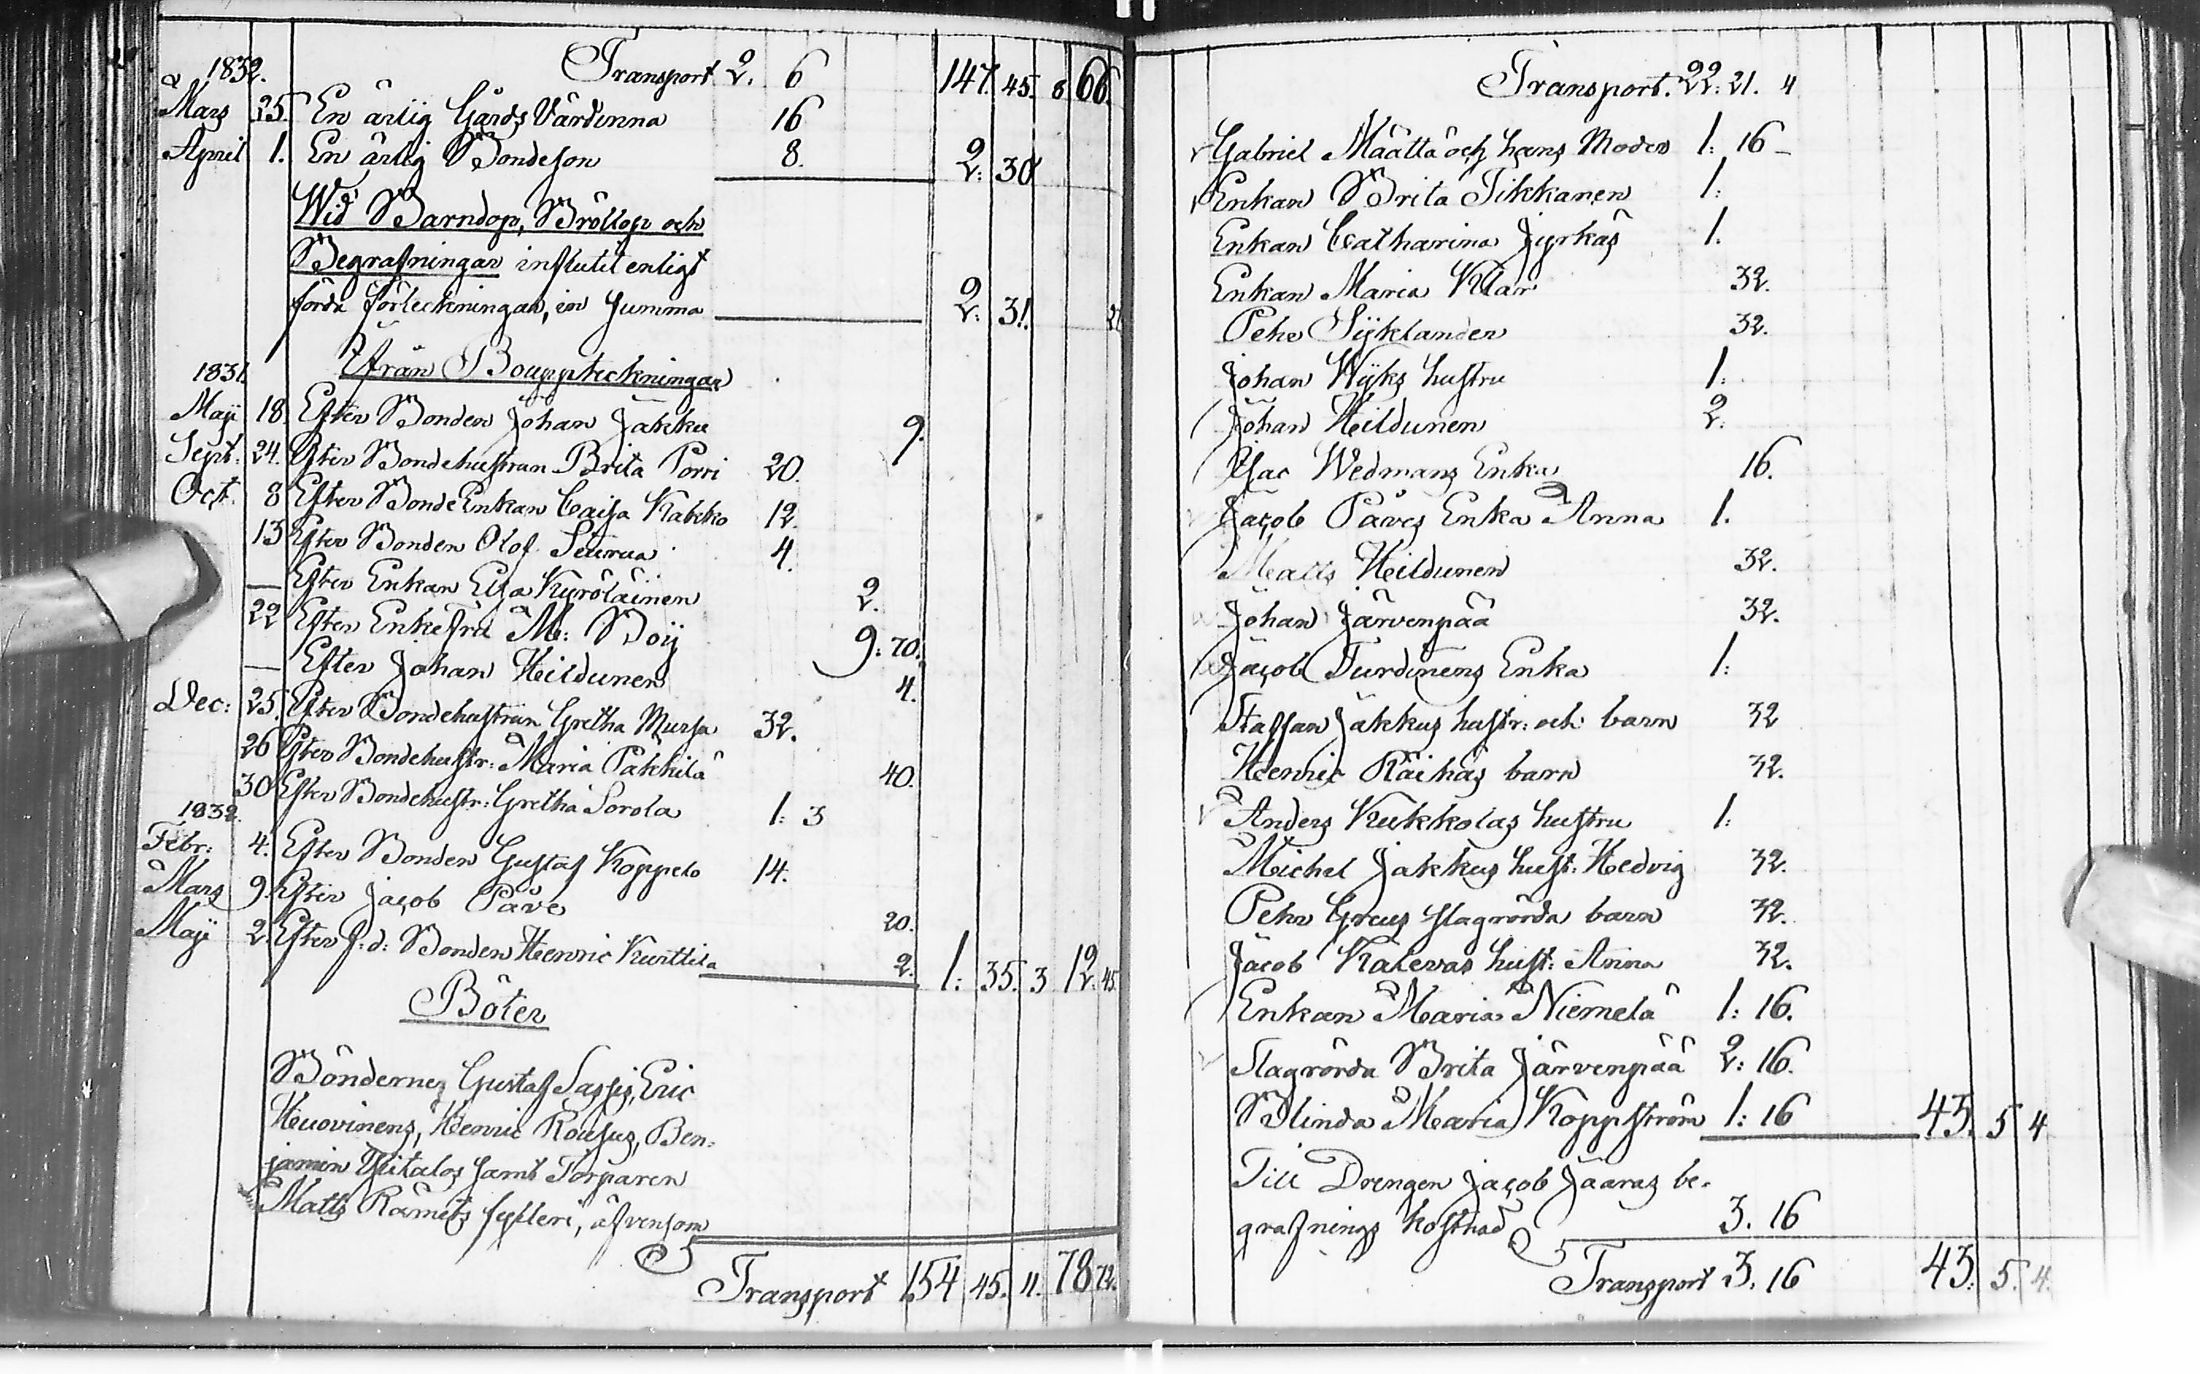 1832. Transport 2. 6 147. 45. 8 66.
Mars 25. En ärlig Gårds Värdinna 16
April 1. En ärlig Bondeson 8. 2: 30
Wid Barndop, Bröllop och
Begrafningar influtit enligt
förda förteckningar, in summa 2: 31.
Ifrån Bouppteckningar
1831.
Maji 18. Efter Bonden Johan Jakku 9.
Sept. 24. Efter Bondehustrun Brita Porri 20.
Oct. 8 Efter BondeEnkan Caisa Kakko 12.
13 Efter Bonden Olof Seurua 4.
— Efter Enkan Elsa Kyröläinen 2.
22 Efter Enkefru M: Boij 9: 70.
— Efter Johan Heildunen 4.
Dec: 25. Efter Bondehustrun Gretha Mursa 32.
26 Efter Bondehustr: Maria Pakkila 40.
30 Efter Bondehustr: Gretha Sorola 1: 3
1832.
Febr: 4. Efter Bonden Gustaf Koppelo 14.
Mars 9. Efter Jacob Pave 20.
Maji 2. Efter f: d: Bonden Henric Kurttila 2. 1: 35. 3 12. 45.
Böter
Böndernes Gustaf Sassis, Eric
Huovinens, Henric Rousus, Ben-
jamin samt Torparen
Matts fylleri, äfvensom
Transport 154 45. 11. 78 72.
Transport. 22: 21. 4
Gabriel Määttä och hans Moder 1: 16 –
Enkan Brita Tikkanen 1:
Enkan Catharina Jyrkäs 1.
Enkan Maria Klar 32.
Pehr Syklander 32.
Johan Wyks hustru 1:
Johan Heildunen 2.
Isac Wedmans Enka 16.
Jacob Paves Enka Anna 1.
Matts Heildunen 32.
Johan Järvenpää 32.
Jacob Turdinens Enka 1:
Staffan Jakkus hustr: och barn 32
Henric Räihäs barn 32.
Anders Kukkolas hustru 1:
Michel Jakkus hust: Hedvig 32.
Pehr Greus slagrörda barn 32.
Jacob Kalevas hust: Anna 32.
Enkan Maria Niemelä 1: 16.
Slagrörda Brita Järvenpää 2: 16.
Blinda Maria Koppström 1: 16 43. 5 4
Till Drengen Jacob Jaaras be-
grafnings kostnad 3. 16
Transport 3. 16 43. 5. 4.